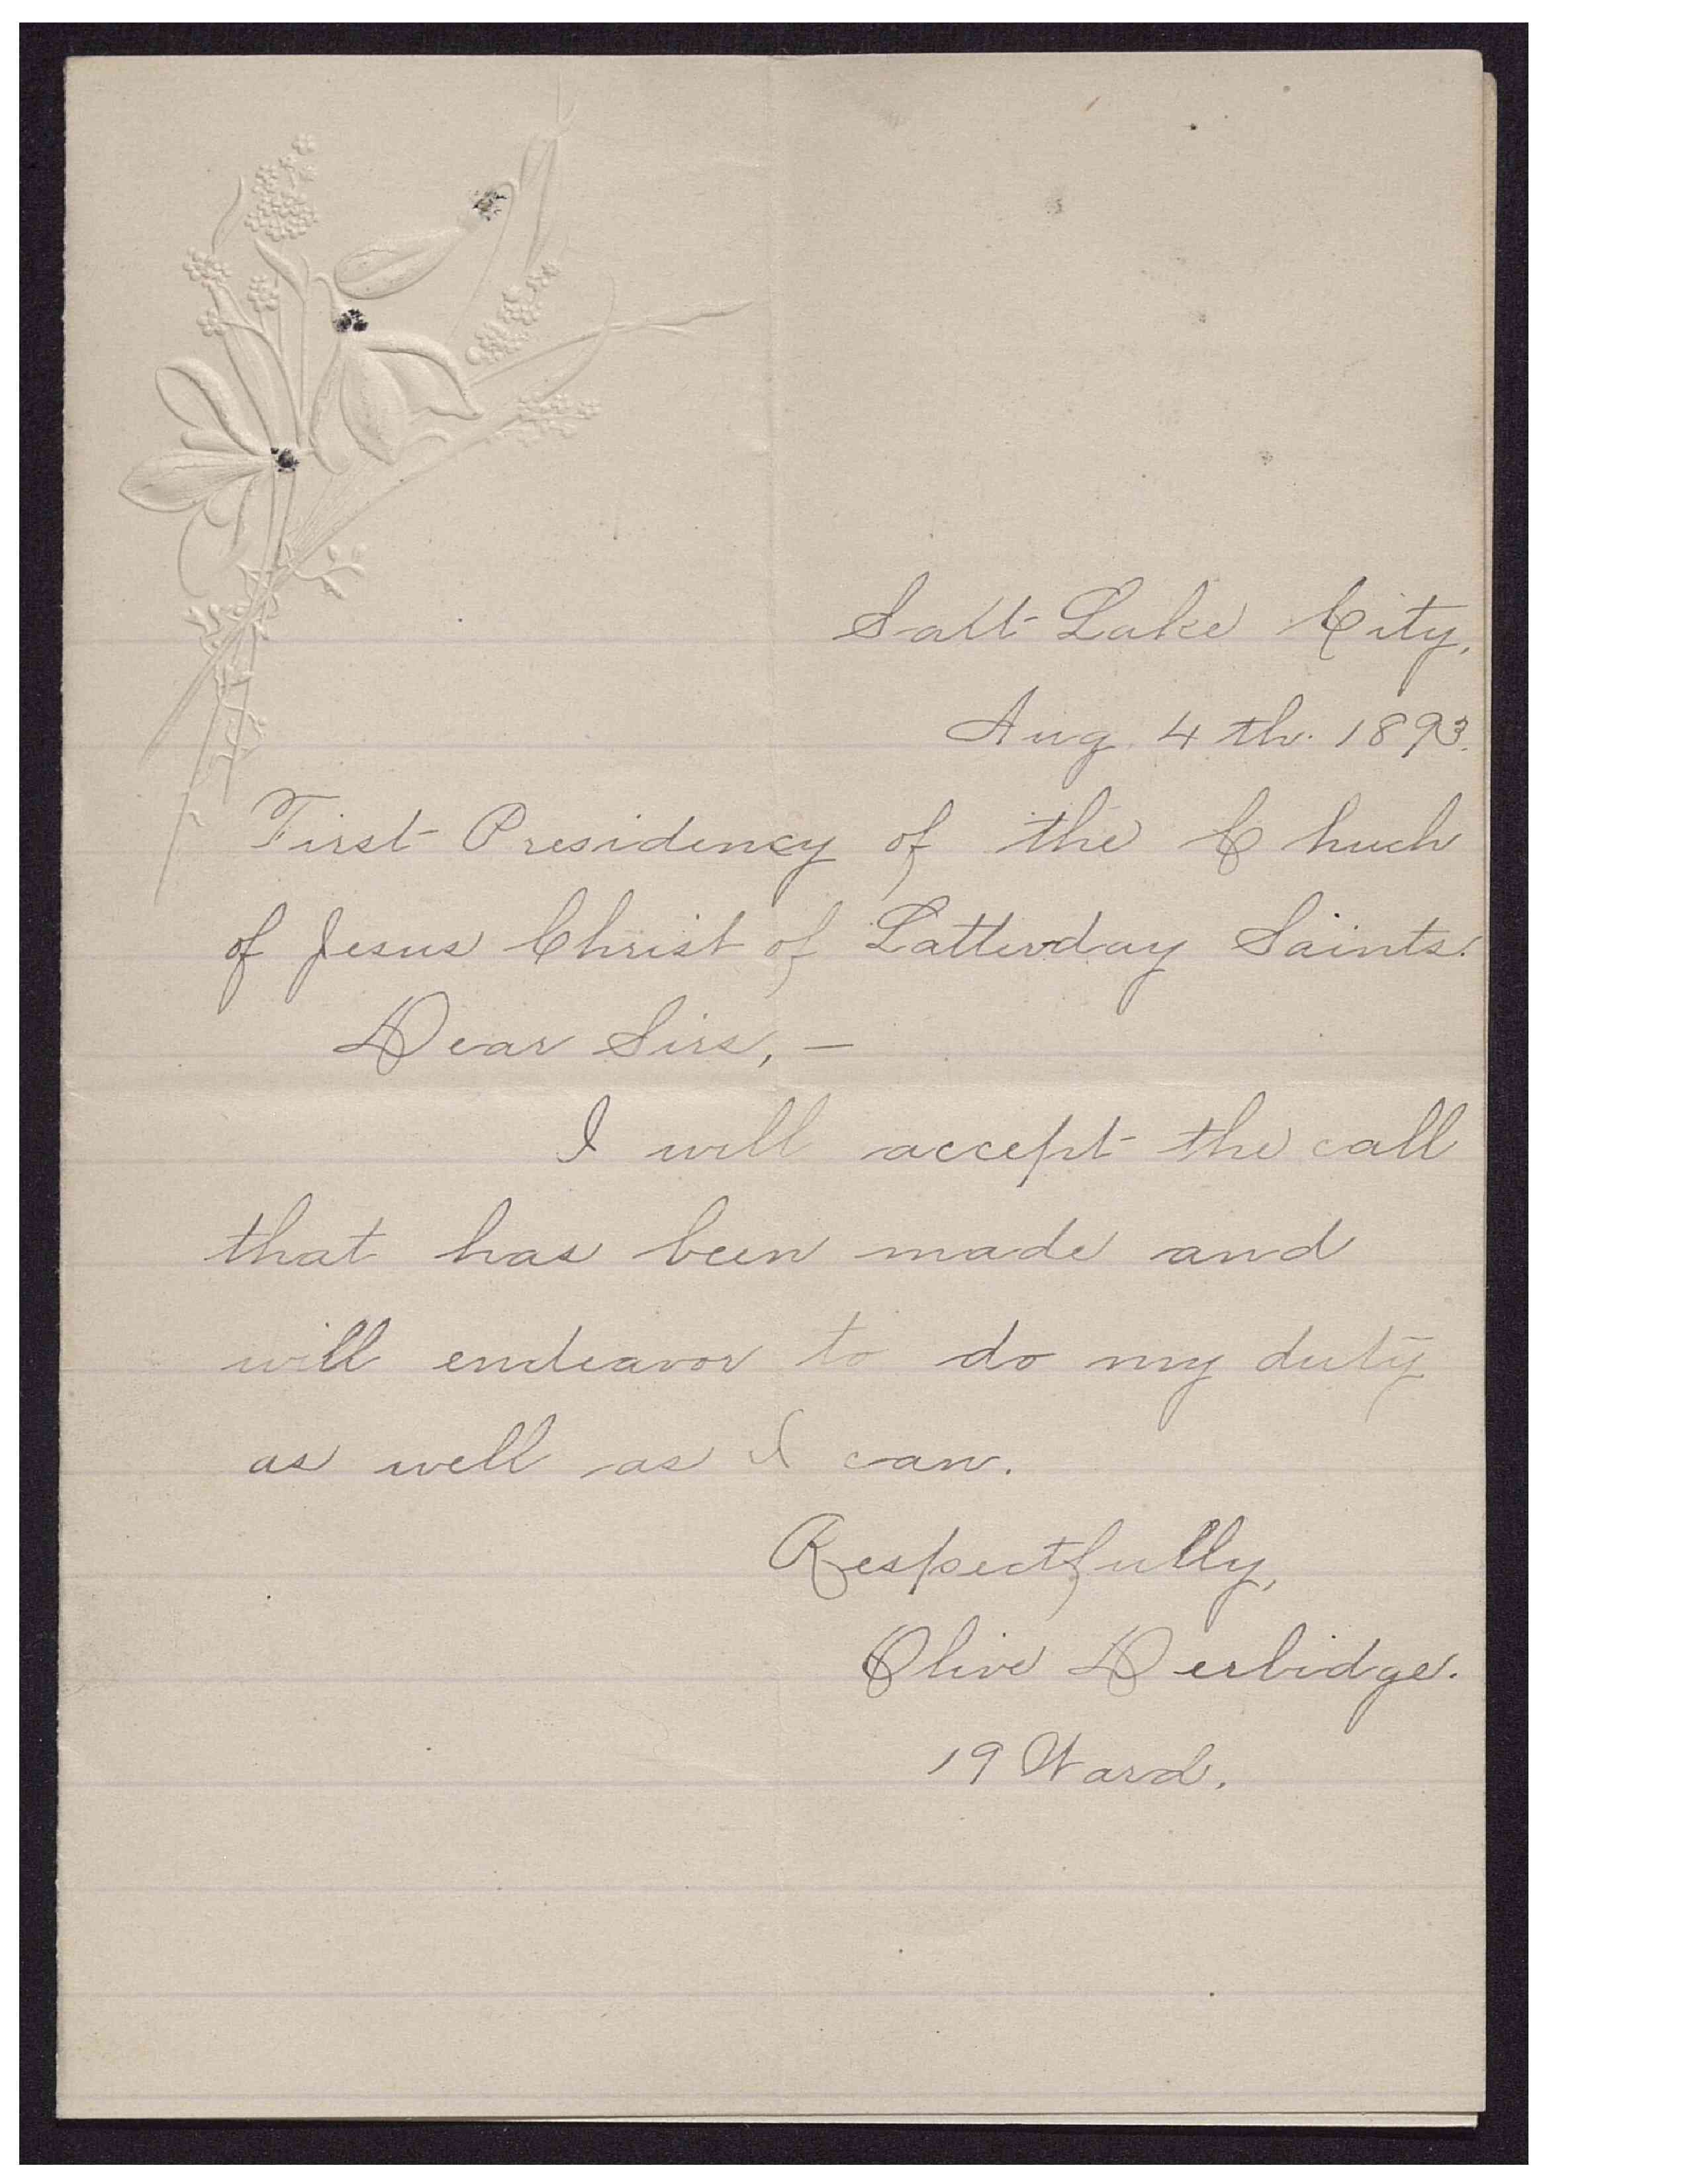 Salt Lake City,
Aug. 4 th. 1893.
First Presidency of the Chuch
of Jesus Christ of Latterday Saints.
Dear Sirs, —
I will accept the call
that has been made and
will endeavor to do my duty
as well as I can.
Respectfully,
Olive Derbidge.
19 Ward.